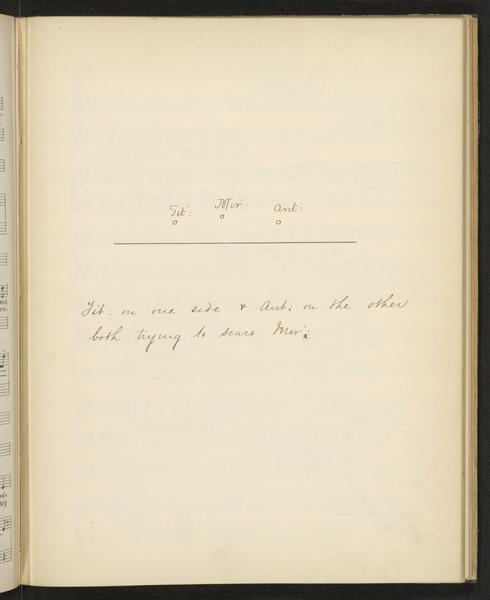 Tit: Mir: Ant:
Tit: on one side & Ant: on the other
both trying to scare Mir: